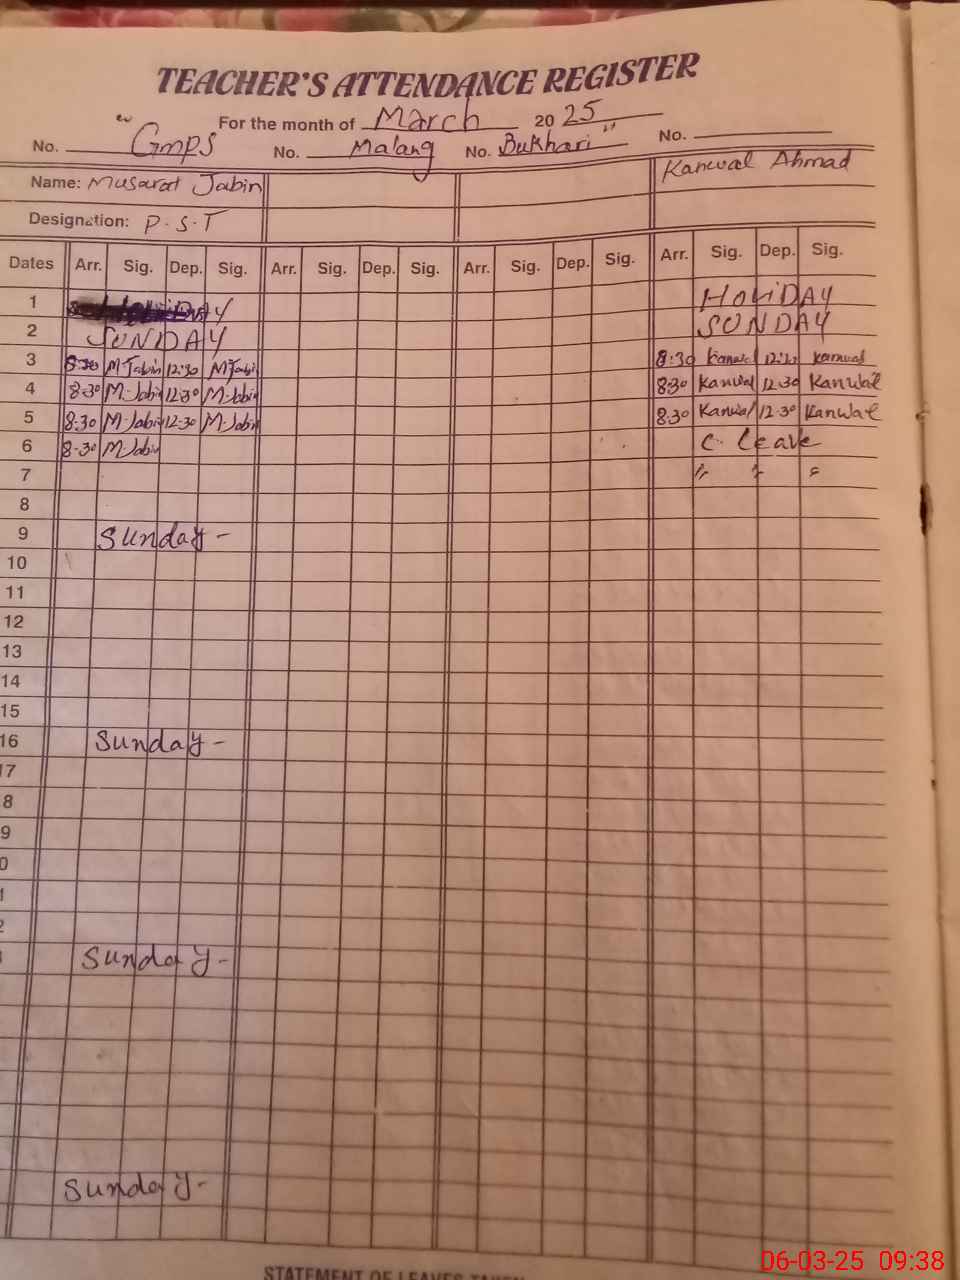 TEACHER'S ATTENDANCE REGISTER
For the month of March 2025
No. "Gmps No. Malang No. Bukhari" No.
Name: Musarat Jabin Kanwal Ahmad
Designation: P.S.T
Dates Arr. Sig. Dep. Sig. Arr. Sig. Dep. Sig. Arr. Sig. Dep. Sig. Arr. Sig. Dep. Sig.
1 HOLIDAY
2 SUNDAY SUNDAY
3 8:30 M-Jabin 12:30 M-Jabin 8:30 Kanwal 12:30 Kanwal
4 8:30 M-Jabin 12:30 M-Jabin 8:30 Kanwal 12:30 Kanwal
5 8:30 M-Jabin 12-30 M-Jabin 8:30 Kanwal 12-30 Kanwal
6 8-30 M-Jabin C. leave
7 " " "
8
9 Sunday -
10
11
12
13
14
15
16 Sunday -
17
8
9
0
1
2
Sunday -
Sunday -
STATEMENT OF LEAVES TAKEN
06-03-25 09:38